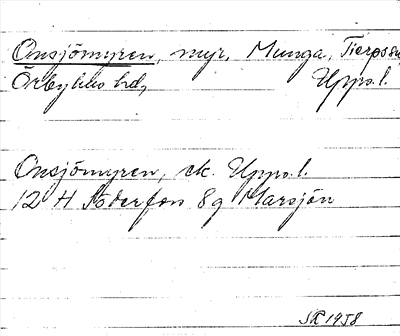 Onsjömyren, myr, Munga, Tierps sn
Örbyhus hd, Upps. l.
Onsjömyren, ek. Upps. l.
12 H Söderfors 8g Marsjön
1958